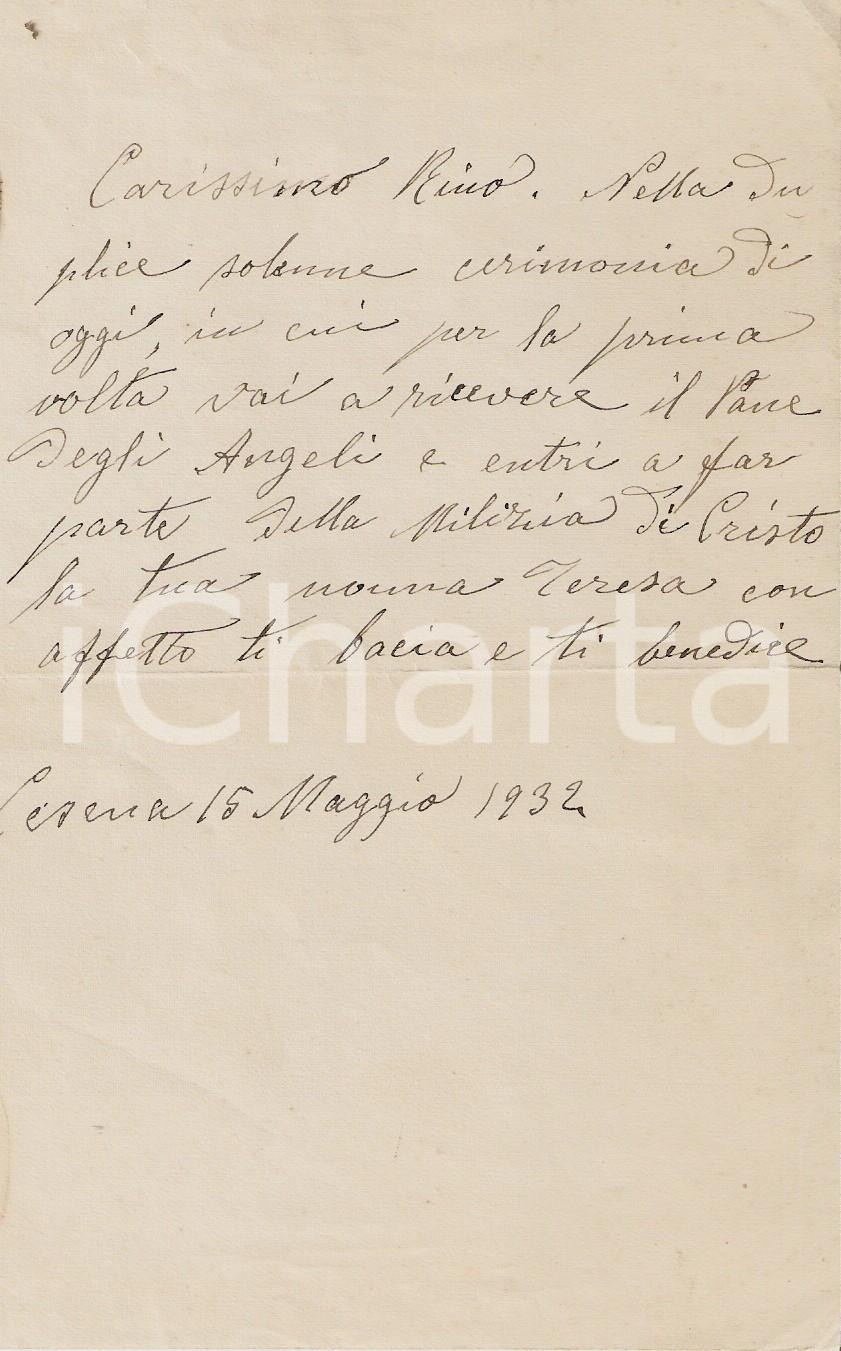 Carissimo Rino. Nella du
plice solenne cerimonia di
oggi, in cui per la prima
volta vai a ricevere il Pane
degli Angeli e entri a far
parte della Milizia di Cristo
la tua nonna Teresa con
affetto ti bacia e ti benedice
iCharta
Cesena 15 Maggio 1932